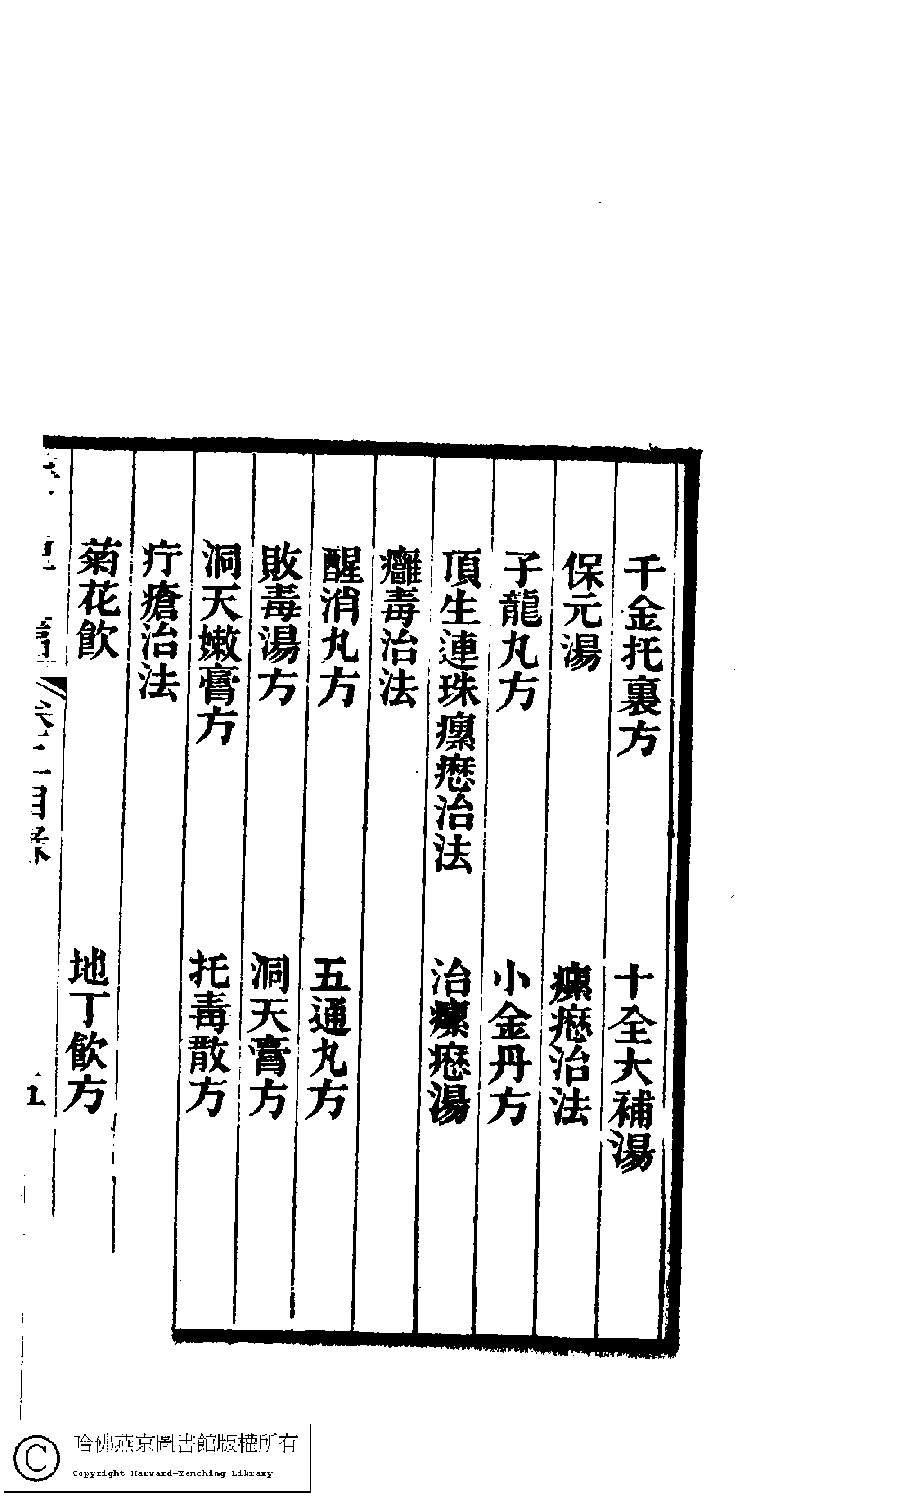 千金托裏方 十全大補湯
保元湯 瘰癧治法
子龍丸方 小金丹方
頂生連珠瘰癧治法 治瘰癧湯
癰毒治法
醒消丸方 五通丸方
敗毒湯方 洞天膏方
洞天嫩膏方 托毒散方
疔瘡治法
菊花飲 地丁飲方
目錄 五
哈佛燕京圖書館版權所有
Copyright Harvard-Yenching Library